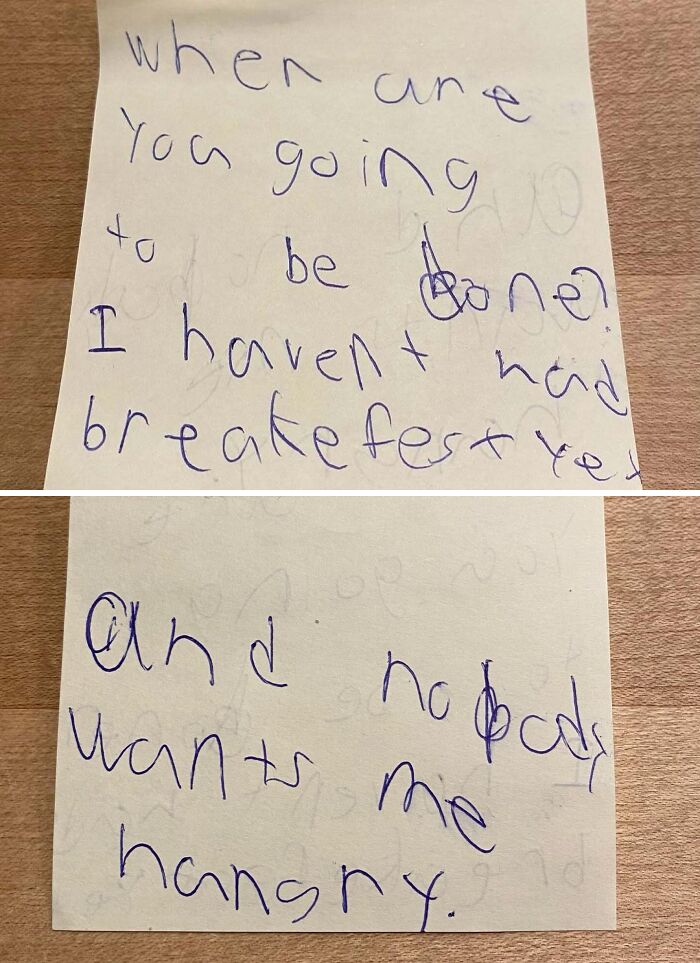 when are
You going
to be done?
I havent had
breakefest yet
and nobody
wants me
hangry.